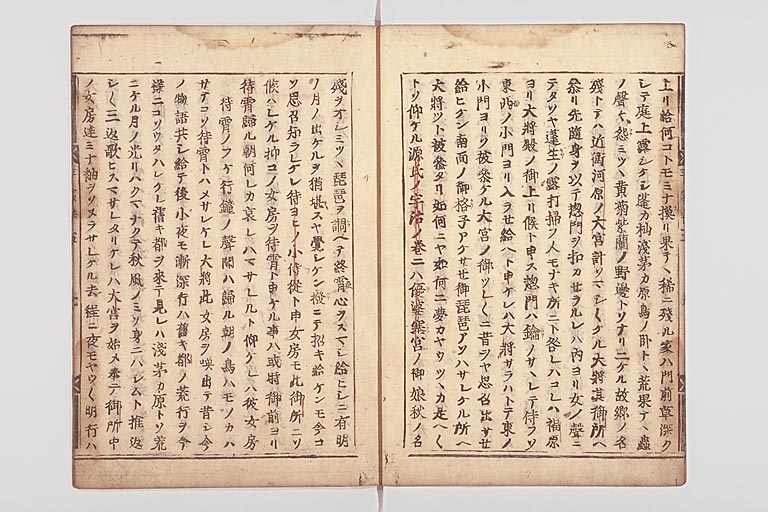 上リ給何コトモミナ換リ果テヽ稀ニ殘ル家ハ門前草深ク
シテ庭上露シケシ蓬カ杣淺茅カ原鳥ノ卧トヽ荒果テヽ蟲
ノ聲々怨ミツヽ黄菊紫蘭ノ野邊トソナリニケル故郷ノ名
殘トテハ近衛河原ノ大宮計ソマシ〱ケル大將其御所ヘ
叅リ先隨身ヲ以テ惣門ヲ扣カセラルレハ内ヨリ女ノ聲ニ
テタソヤ蓬生ノ露打掃フ人モナキ所ニト咎レハコレハ福原
ヨリ大將殿ノ御上リ候ト申ス惣門ハ鑰ノサヽレテ侍フソ
東ノ小門ヨリ入ラせ給ヘト申ケレハ大將サラハトテ東ノ
小門ヨリソ被叅ケル大宮ノ御ツレ〱ニ昔ヲヤ思召出サせ
給ヒケン南面ノ御格子アケサせ御琵琶アソハサレケル所ヘ
大將ツト被叅タリ如何ニヤ如何ニ夢カヤウツヽカ是ヘ〱
トソ仰ケル源氏ノ宇治ノ巻ニハ優婆塞宮ノ御娘秋ノ名
殘ヲオシミツヽ琵琶ヲ調ヘテ終霄心ヲスマシ給ヒシニ有明
ノ月ノ出ケルヲ猶堪スヤ覺シケン撥ニテ招キ給ケンモ今コ
ソ思召知ラレケレ待ヨヒノ小侍從ト申女房モ此御所ニソ
候ハレケル抑コノ女房ヲ待霄ト申ケル事ハ或時御前ヨリ
待霄歸ル朝何レカ哀レハマサレルト仰ケレハ彼女房
待霄ノフケ行鐘ノ聲聞ハ歸ル朝ノ鳥ハモノカハ
サテコソ待霄トハメサレケレ大將此女房ヲ喚出テ昔シ今
ノ物語共シ給テ後小夜モ漸深行ハ舊キ都ノ荒行ヲ今
様ニコソウタハレケレ舊キ都ヲ來テ見レハ淺茅カ原トソ荒
ニケル月ノ光リハクマナクテ秋風ノミソ身ニハシムト推返
シ〱三返歌ヒスマサレタリケレハ大宮ヲ始メ奉テ御所中
ノ女房達ミナ袖ヲソヌラサレケル去程ニ夜モヤウ〱明行ハ